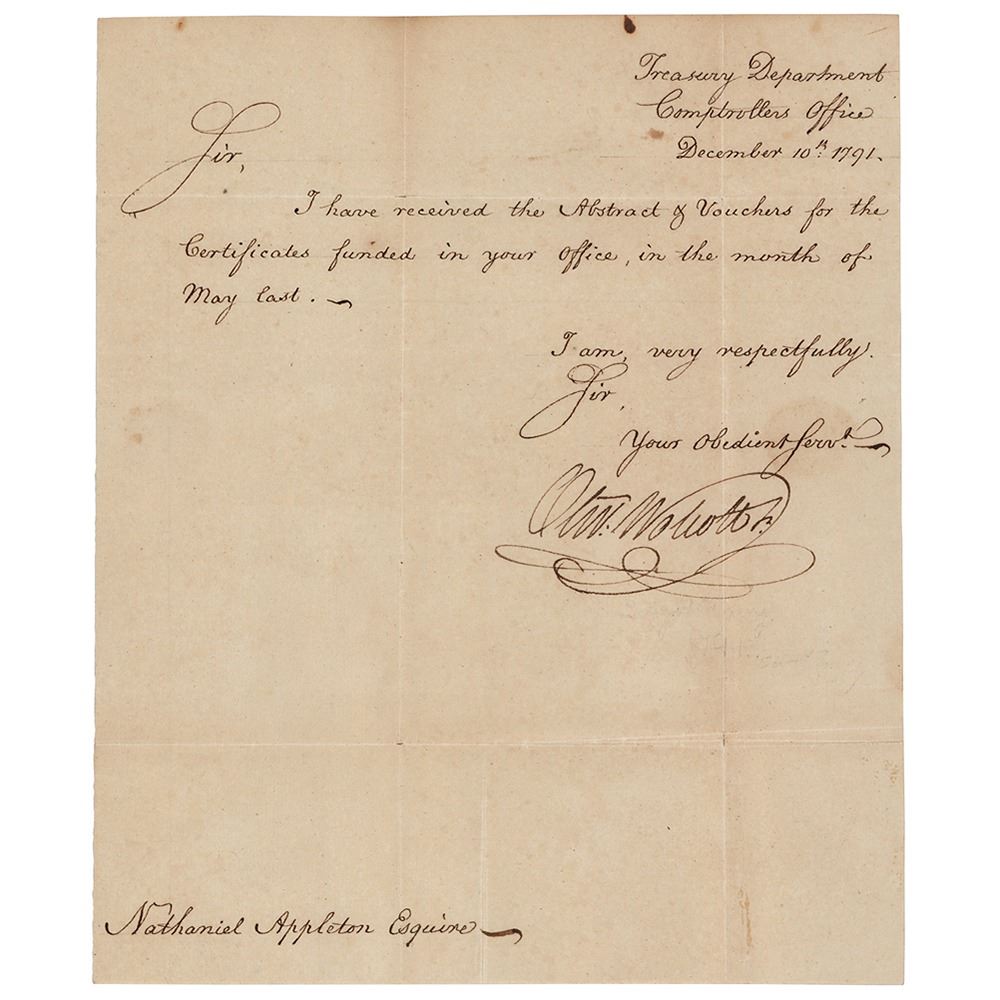 Treasury Department
Comptrollers Office
December 10th. 1791.
Sir,
I have received the Abstract & Vouchers for the
Certificates funded in your Office, in the month of
May last.
I am, very respectfully.
Sir,
Your Obedient Servt.
Olivr. Wolcott Jr.
Nathaniel Appleton Esquire